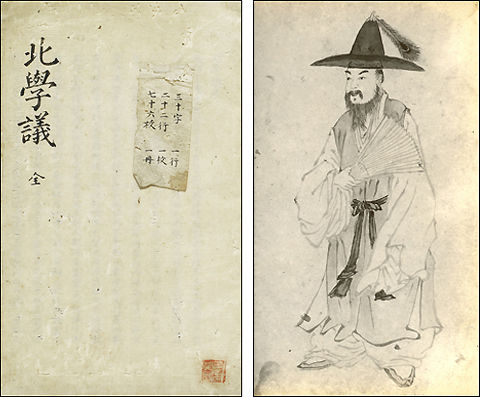 北學議
全
三十字 一行
二十二行 一校
七十六校 一冊